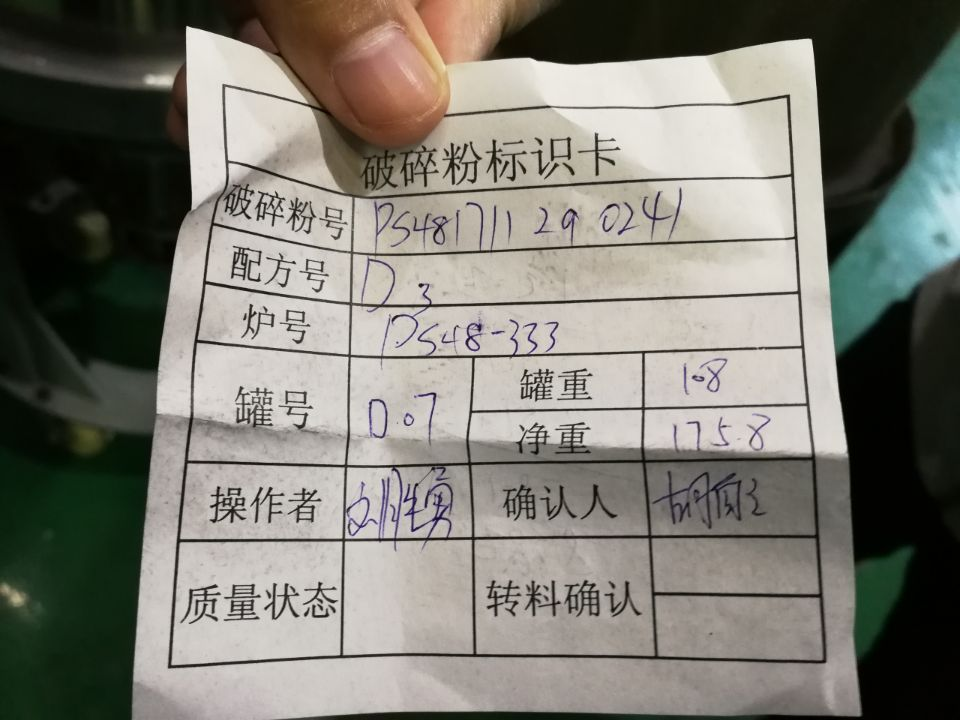 破碎粉标识卡
破碎粉号 PS481711290241
配方号 D3
炉号 PS48-333
罐号 D07 罐重 108
净重 175.8
操作者 确认人
质量状态 转料确认